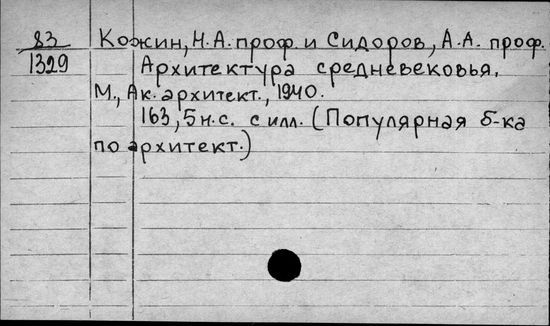 83 Кожин, Н.А. проф. и Сидоров, А.А. проф.
1329 Архитектура средневековья.
М., Ак. архитект., 1940.
163, 5 н.с. с илл. (Популярная б-ка
по архитект.)